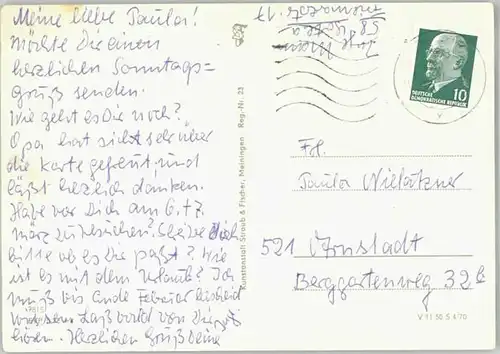 Meine liebe Paula!
Möchte Dir einen
herzlichen Sonntags=
gruß senden.
Wie geht es Dir noch?
Opa hat sich sehr über
die Karte gefreut, und
läßt herzlich danken.
Habe vor Dich am 6. + 7.
März zu besuchen. Schreibe
bitte ob es Dir paßt? Wie
ist es mit dem Urlaub? Ich
muß bis Ende Februar bescheid
wissen. Laß bald von Dir
hören. Herzlichen Gruß Deine
Kunstanstalt Straub & Fischer, Meiningen Reg.-Nr. 23
DEUTSCHE
DEMOKRATISCHE REPUBLIK
10
Frl.
Paula
521 Arnstadt
Berggartenweg 32
V 11 50 S 4/70